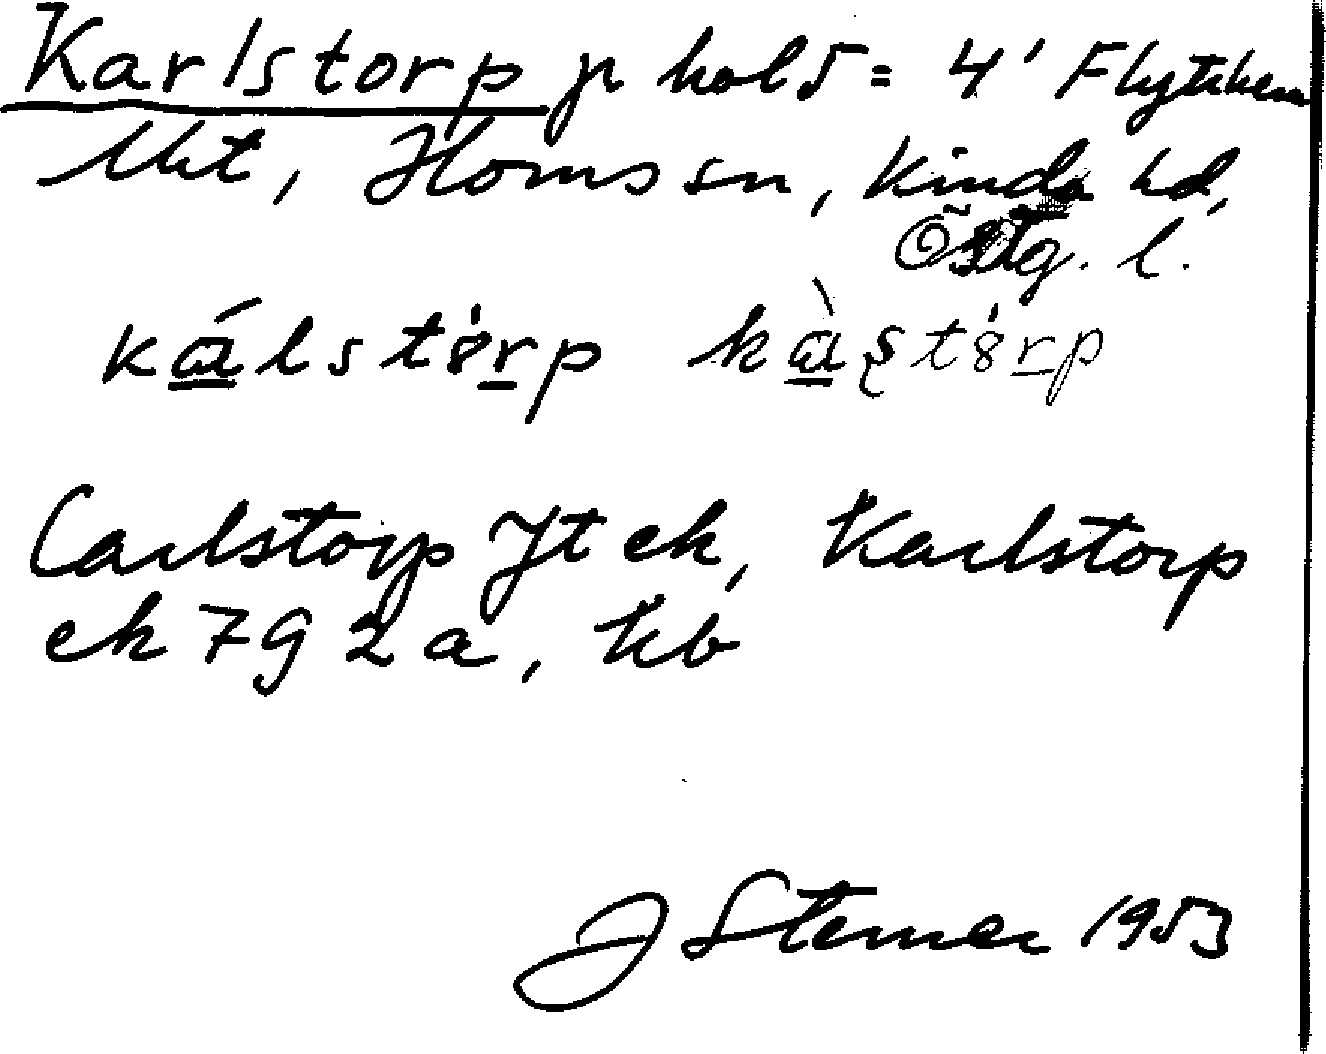 Karlstorp p hold = 4' Flytthem
Mt, Horns sn, Kinda hd,
Östg. l.
kálstȯrp kàʂtȯrp
Carlstorp Jt ek, Karlstorp
ek 7g 2a, kb
J Sterner 1953